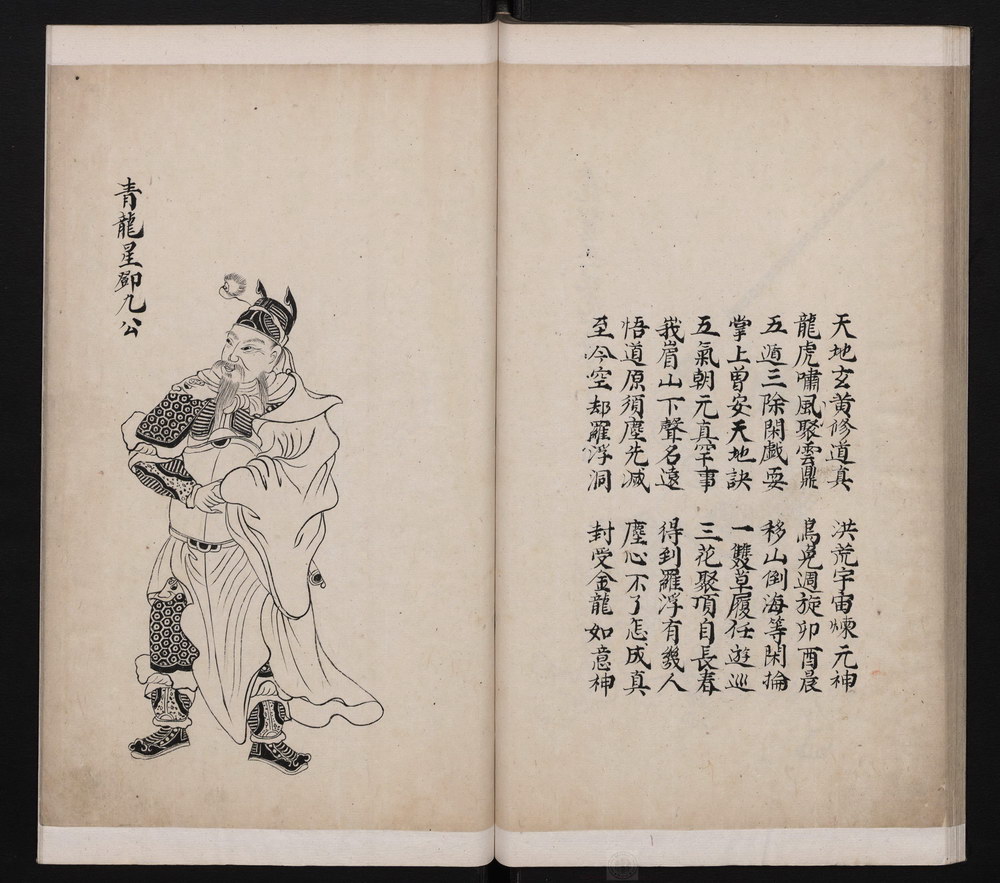 天地玄黃修道真　洪荒宇宙煉元神
龍虎嘯風聚雲鼎　烏兔週旋卯酉晨
五遁三除閑戲耍　移山倒海等閑掄
掌上曽安天地訣　一雙草履任遊巡
五氣朝元真罕事　三花聚頂自長春
我眉山下聲名遠　得到羅浮有幾人
悟道原須塵先滅　塵心不了怎成真
至今空却羅浮洞　封受金龍如意神
青龍星鄧九公